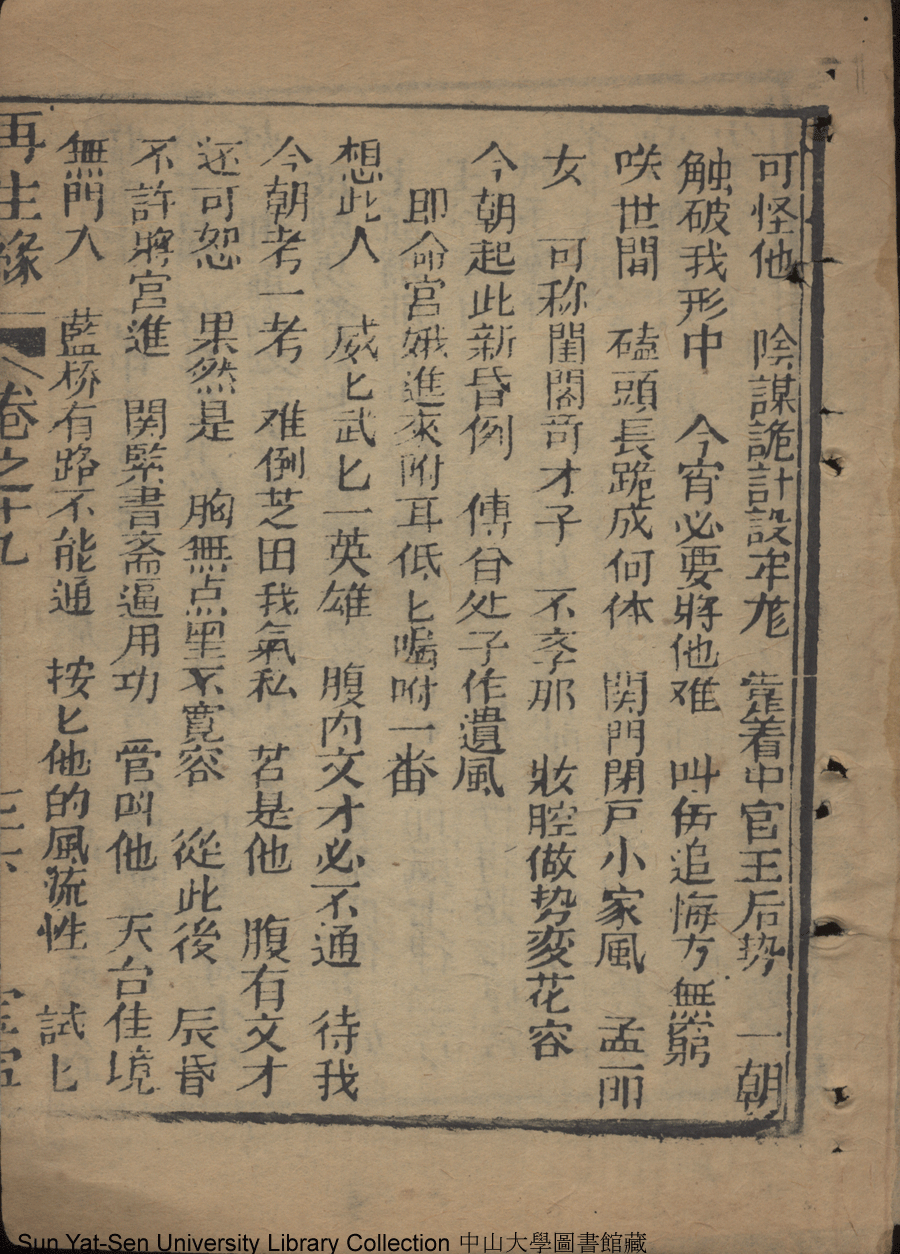 可怪他　陰謀詭計設牢尨　靠着中官王后势　一朝
触破我形中　今宵必要將他难　叫伊追悔方無窮
咲世間　磕頭長跪成何体　関門閉戸小家風　孟郎
女　可称閨閣奇才子　不孝那　妝腔做势変花容
今朝起此新昏例　傅谷处子作遺風
即命宫娥進來附耳低匕嘱咐一番
想此人　威匕武匕一英雄　腹内文才必不通　待我
今朝考一考　难倒芝田我氣私　若是他　腹有文才
还可恕　果然是　胸無点墨不寛容　從此後　辰昏
不許將宫進　関緊書斋逼用功　管叫他　天台佳境
無門入　藍桥有路不能通　按匕他的風流性　試匕
再生緣　卷之十九
Sun Yat-Sen University Library Collection 中山大學圖書館藏